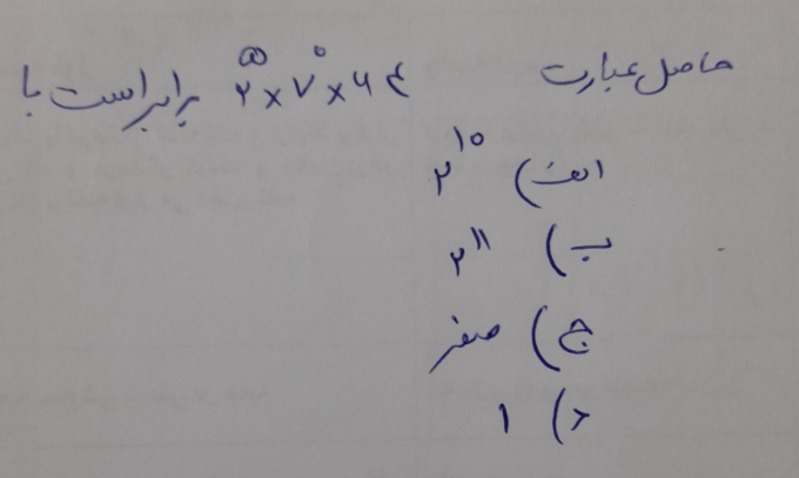 حاصل عبارت ۲^۵ × ۷^۰ × ۶۴ برابر است با
الف) ۲^۱۰
ب) ۲^۱۱
ج) صفر
د) ۱